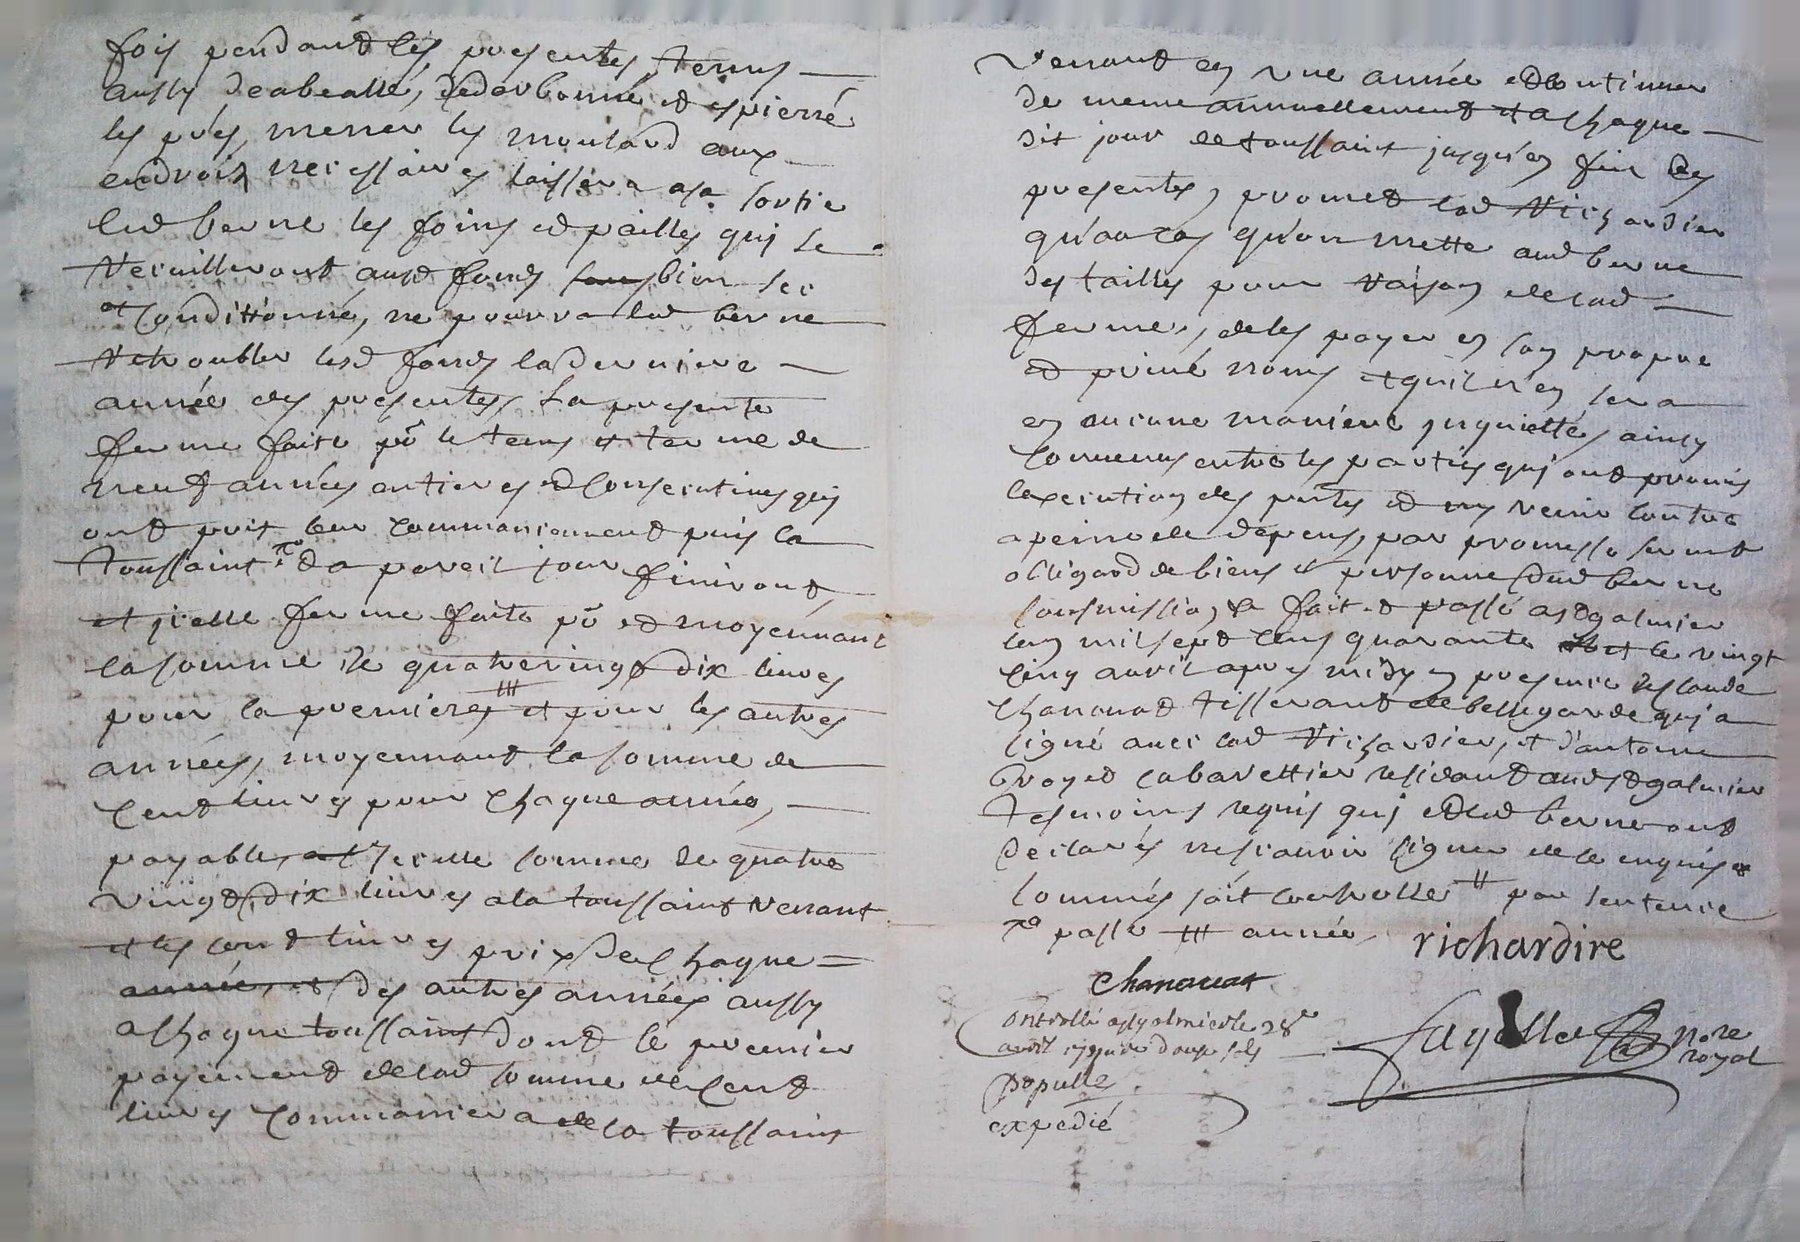 fois pendant les presentes, tenus
aussy deabeallé, dedarbonné et espierré
les prés, mener les moulard aux
endroix necessaires laissera asa sortie
led berne les foins et pailles qui se
recuilleront aud fonds bien sec
et conditionné, ne pourra led berne
retroubler lesd fonds laderniere
année des presentes, la presente
ferme faite pr le tems et terme de
neuf années entieres et consecutives qui
ont pris leur commancement puis la
toussaint et a pareil jour finiront,
et jcelle ferme faite pr et moyennant
la somme de quatrevingt dix livres
pour la premiere, et pour les autres
années, moyennant la somme de
cent livres pour chaque année,
payable, jcelle somme de quatre
vingt dix livres a la toussaint venant
et les cent livres prix de chaque
année, et des autres années aussy
a chaque toussaint dont le premier
payement de lad somme de cent
livres commancera de la toussaint
venant en une année et continuer
de meme annuellement et a chaque
dit jour de toussaint jusqu'en fin des
presentes, promet led richardier
qu'au cas qu'on mette aud berne
des tailles pour raison de lad
ferme, de les payer en son propre
et privé noms et qu'il n'en sera
en aucune maniere jnquietté, ainsy
convenus entre les parties qui ont promis
l'execution des pntes et ny venir contre
a peine de depens, par promesse serment
obligaõn de biens et personne dud berne
soumission &a fait et passé a St galmier
lan mil sept cens quarante le vingt
cinq avril apres midy en presence de claude
chanavat tisserant de bellegarde qui a
signé avec led richardier, et d'antoine
broyet cabarettier residant aud St galmier
tesmoins requis qui et led berne ont
declarés ne scavoir signer de ce enquis et
sommés soit controllé # par sentence
passé année,
richardire
Chanavat
Controllé a St galmier le 28e
avril reçu douze sols
populle
expedié
fayolle nore
royal